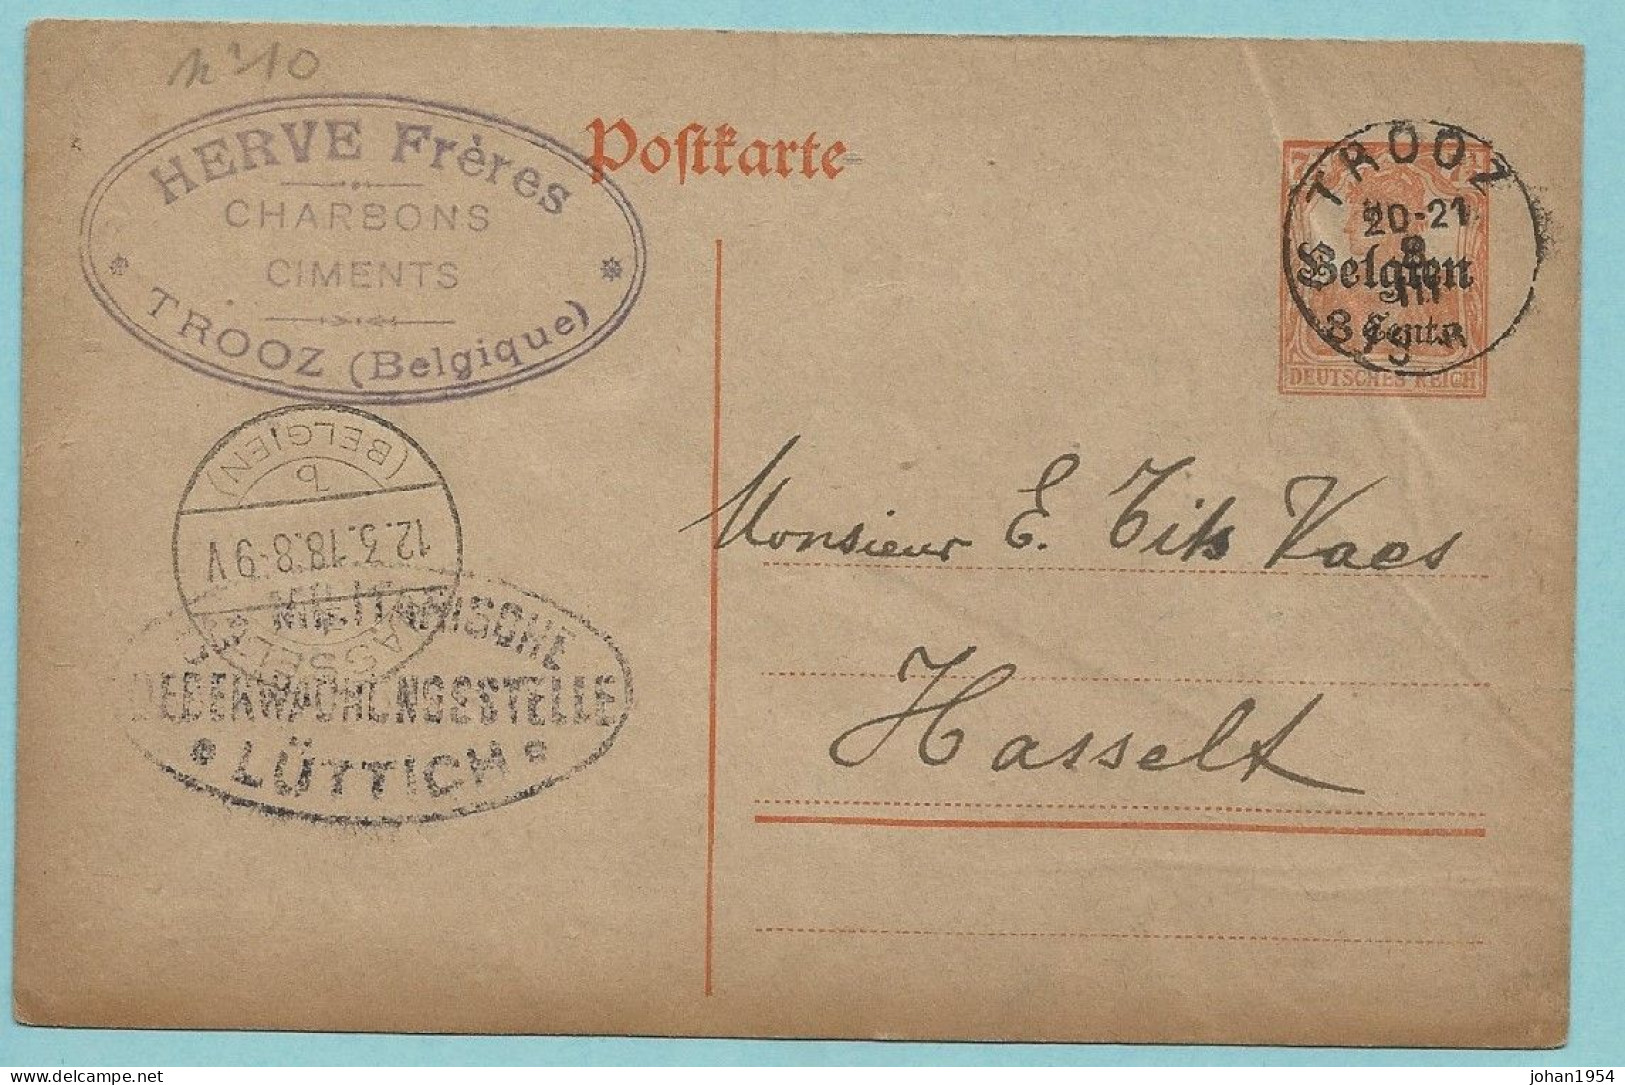 n° 10
HERVE Frères
CHARBONS
CIMENTS
TROOZ (Belgique)
Postkarte
TROOZ
20-21
8
III
Belgien
Cent.
DEUTSCHES REICH
(BELGIEN)
b
12.3.18.8-9V
HASSELT
MILITÄRISCHE
UEBERWACHUNGSSTELLE
* LÜTTICH *
Monsieur E. Tits Vaes
Hasselt
johan1954